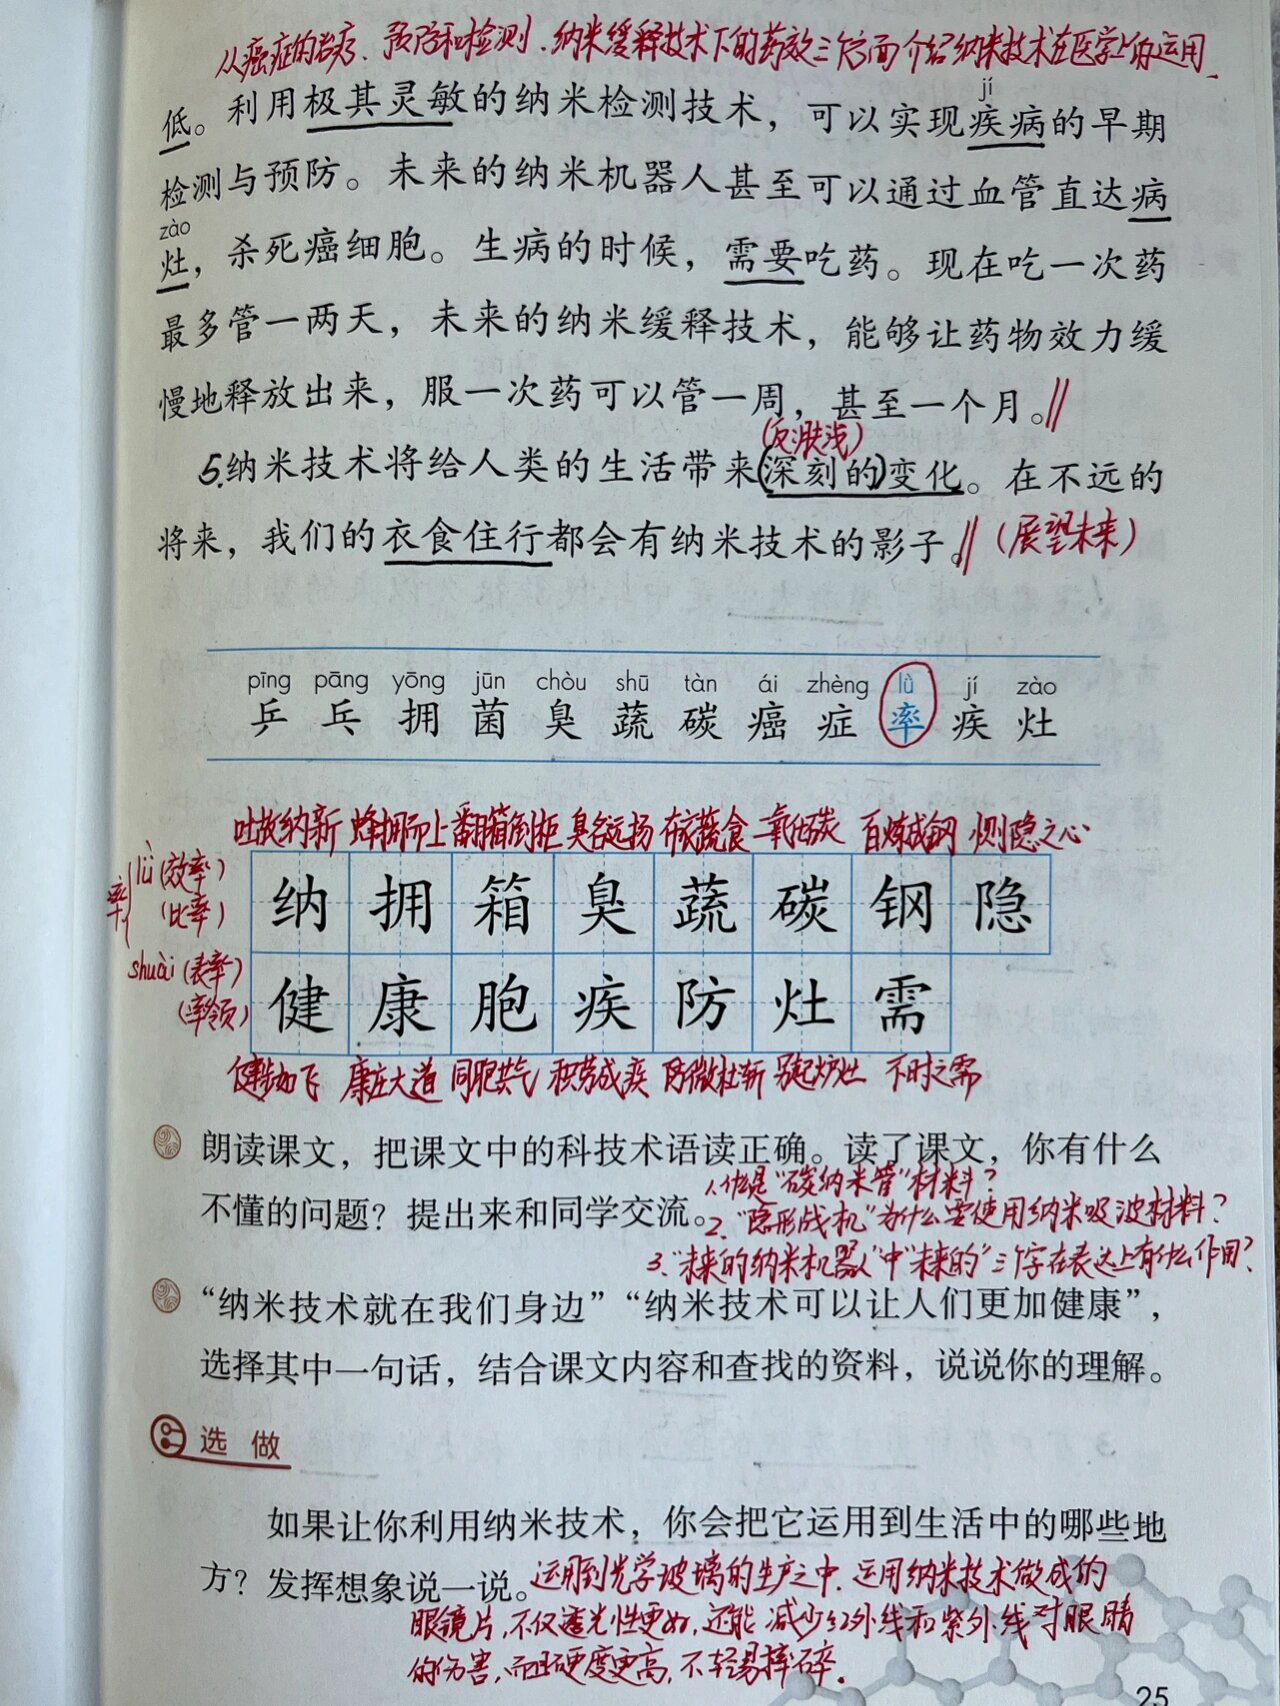 从癌症的治疗、预防和检测、纳米缓释技术下的药效三个方面介绍纳米技术在医学上的运用
jí
低。利用极其灵敏的纳米检测技术，可以实现疾病的早期
检测与预防。未来的纳米机器人甚至可以通过血管直达病
zào
灶，杀死癌细胞。生病的时候，需要吃药。现在吃一次药
最多管一两天，未来的纳米缓释技术，能够让药物效力缓
慢地释放出来，服一次药可以管一周，甚至一个月。
(反:肤浅)
5.纳米技术将给人类的生活带来(深刻的)变化。在不远的
将来，我们的衣食住行都会有纳米技术的影子。(展望未来)
pīng pāng yōng jūn chòu shū tàn ái zhèng lǜ jí zào
乒 乓 拥 菌 臭 蔬 碳 癌 症 率 疾 灶
吐故纳新 蜂拥而上 翻箱倒柜 臭名远扬 布衣蔬食 二氧化碳 百炼成钢 恻隐之心
率 lǜ (效率)
(比率)
shuài (表率)
(率领)
纳 拥 箱 臭 蔬 碳 钢 隐
健 康 胞 疾 防 灶 需
健步如飞 康庄大道 同胞共气 积劳成疾 防微杜渐 另起炉灶 不时之需
朗读课文，把课文中的科技术语读正确。读了课文，你有什么
不懂的问题？提出来和同学交流。
1.什么是“碳纳米管”材料？
2.“隐形战机”为什么要使用纳米吸波材料？
3.“未来的纳米机器人”中“未来的”三个字在表达上有什么作用？
“纳米技术就在我们身边”“纳米技术可以让人们更加健康”，
选择其中一句话，结合课文内容和查找的资料，说说你的理解。
选 做
如果让你利用纳米技术，你会把它运用到生活中的哪些地
方？发挥想象说一说。运用到光学玻璃的生产之中.运用纳米技术做成的
眼镜片,不仅透光性更好,还能减少红外线和紫外线对眼睛
的伤害,而且硬度更高,不轻易摔碎.
25